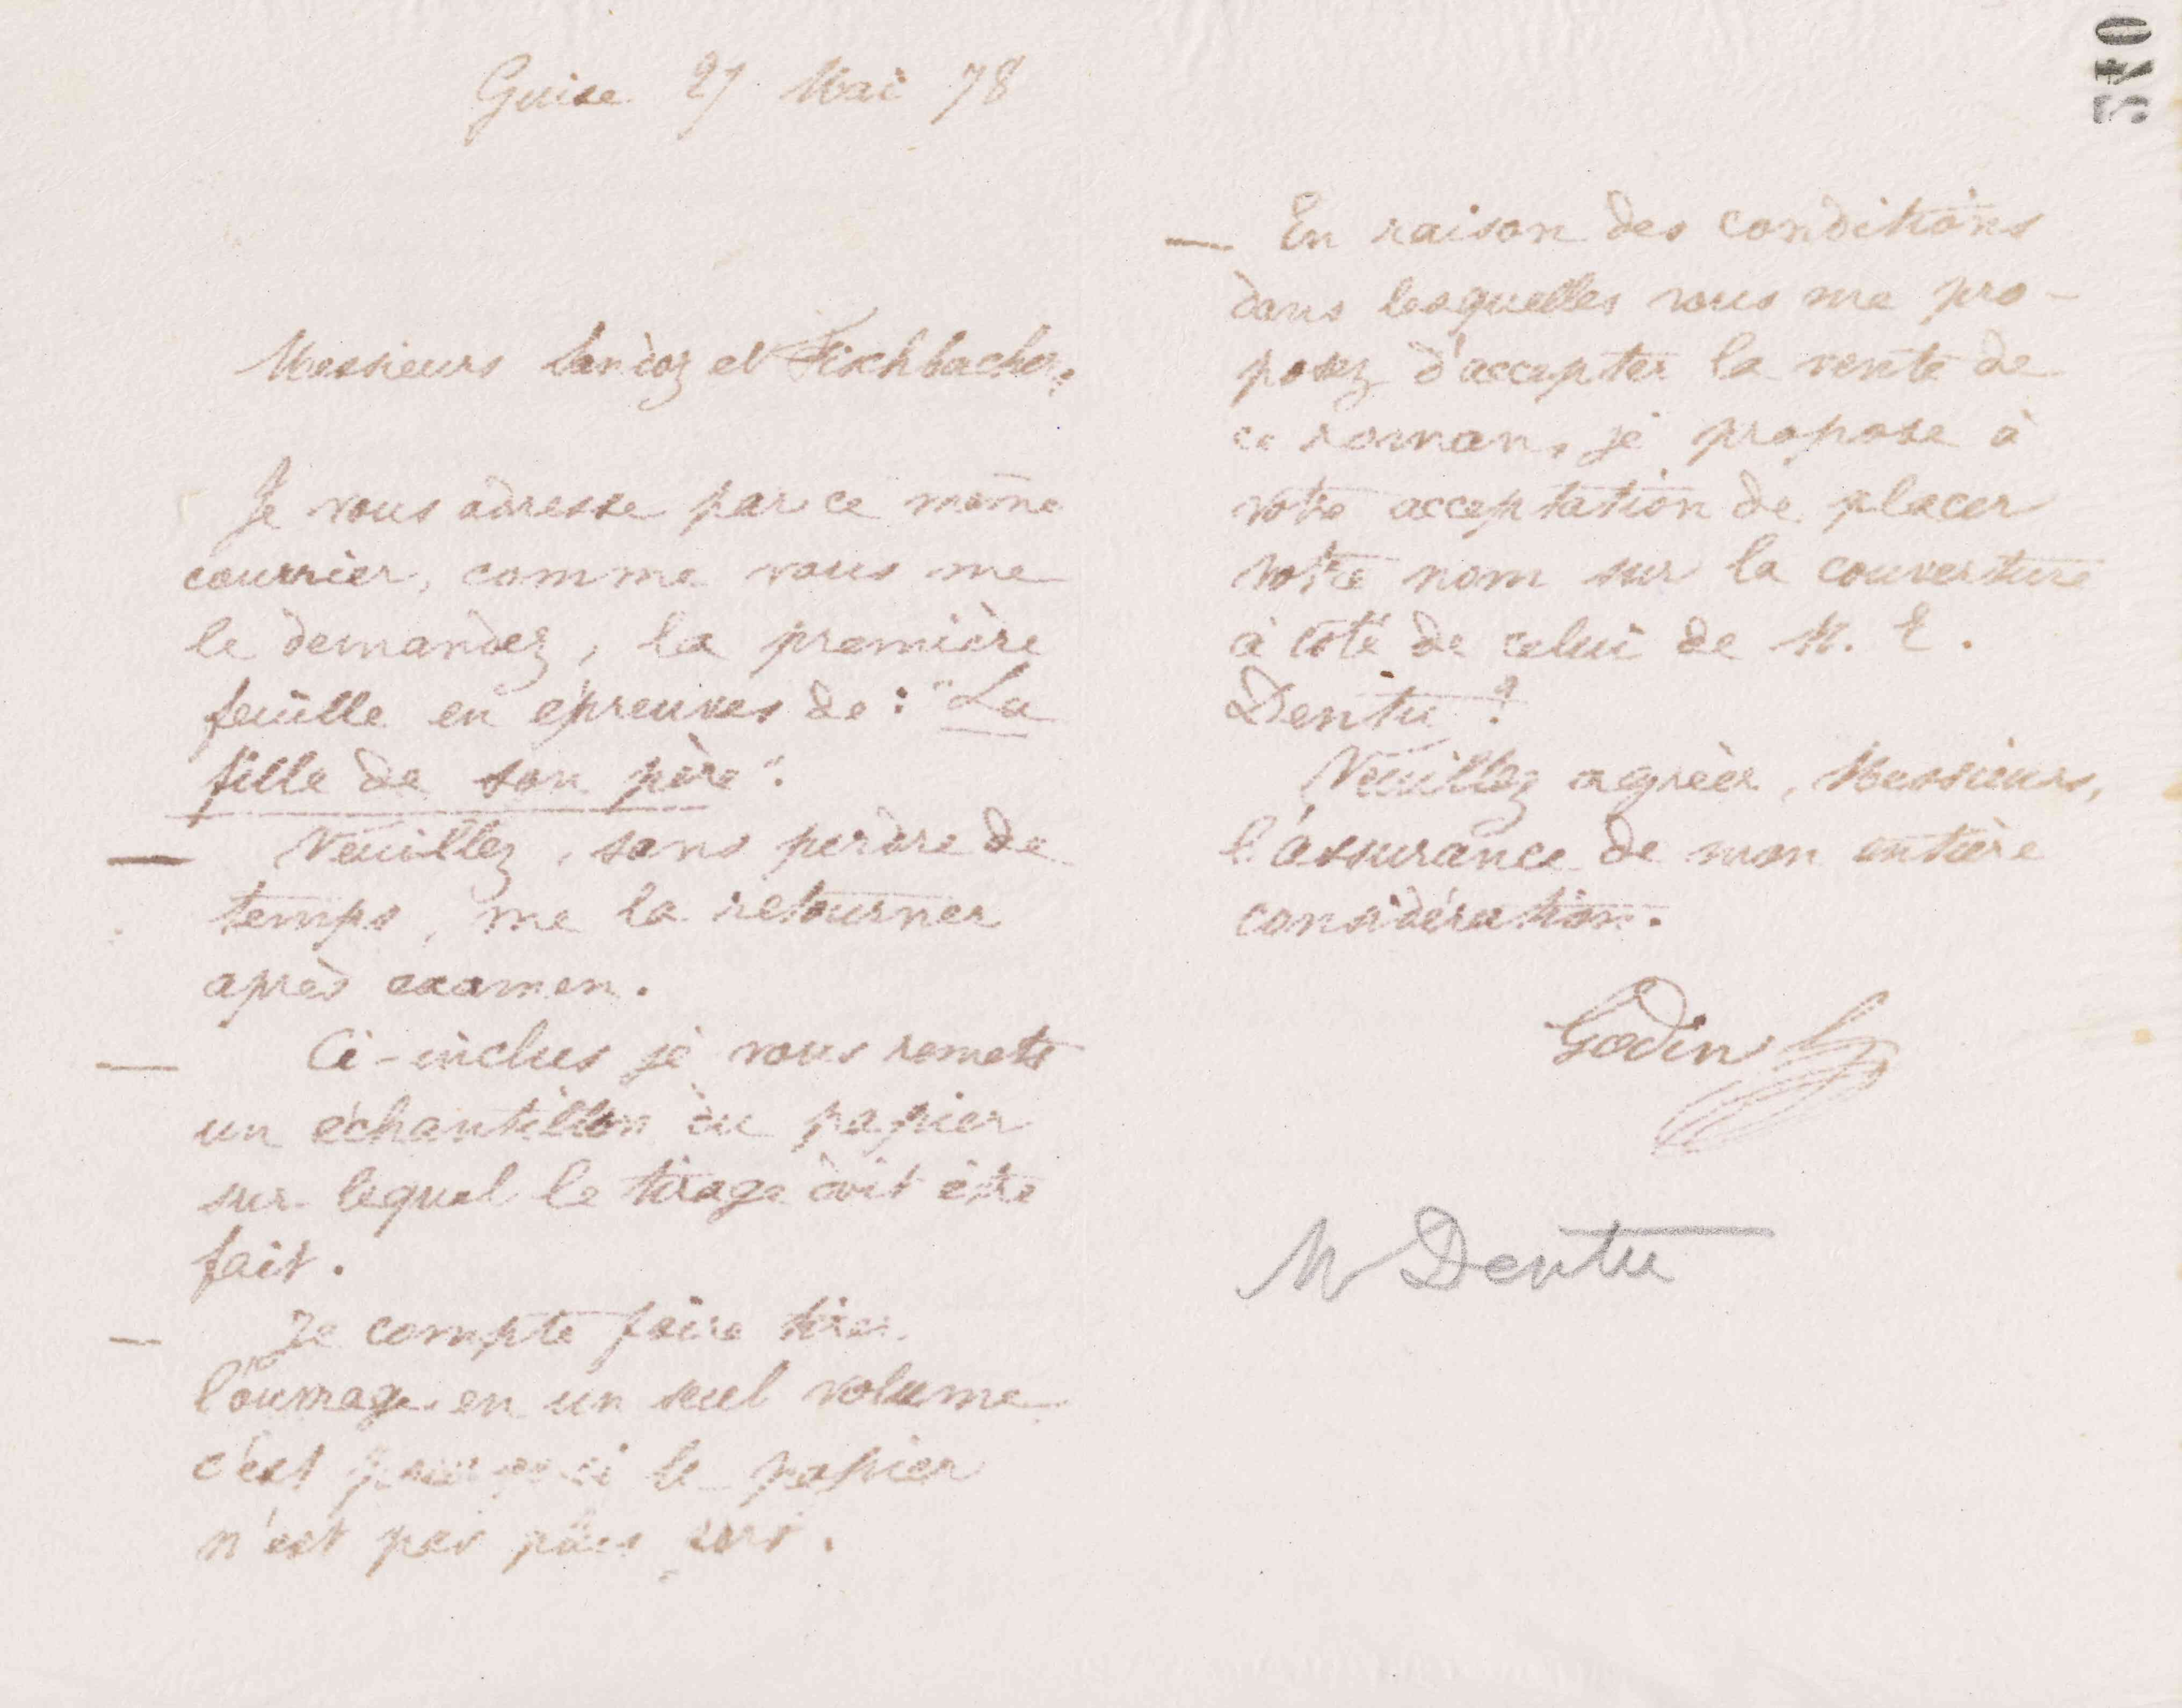 Guise 27 Mai 78
Messieurs Sandoz et Fischbacher,
Je vous adresse par ce même
courrier, comme vous me
le demandez, la première
feuille en épreuves de : "La
fille de son père".
— Veuillez, sans perdre de
temps, me la retourner
après examen.
— Ci-inclus je vous remets
un échantillon du papier
sur lequel le tirage doit être
fait.
— Je compte faire tirer
l'ouvrage en un seul volume
c'est pourquoi le papier
n'est pas plus fort.
540
— En raison des conditions
dans lesquelles vous me pro-
posez d'accepter la vente de
ce roman, je propose à
votre acceptation de placer
votre nom sur la couverture
à côté de celui de M. E.
Dentu ?
Veuillez agréer, Messieurs,
l'assurance de mon entière
considération.
Godin
M Dentu